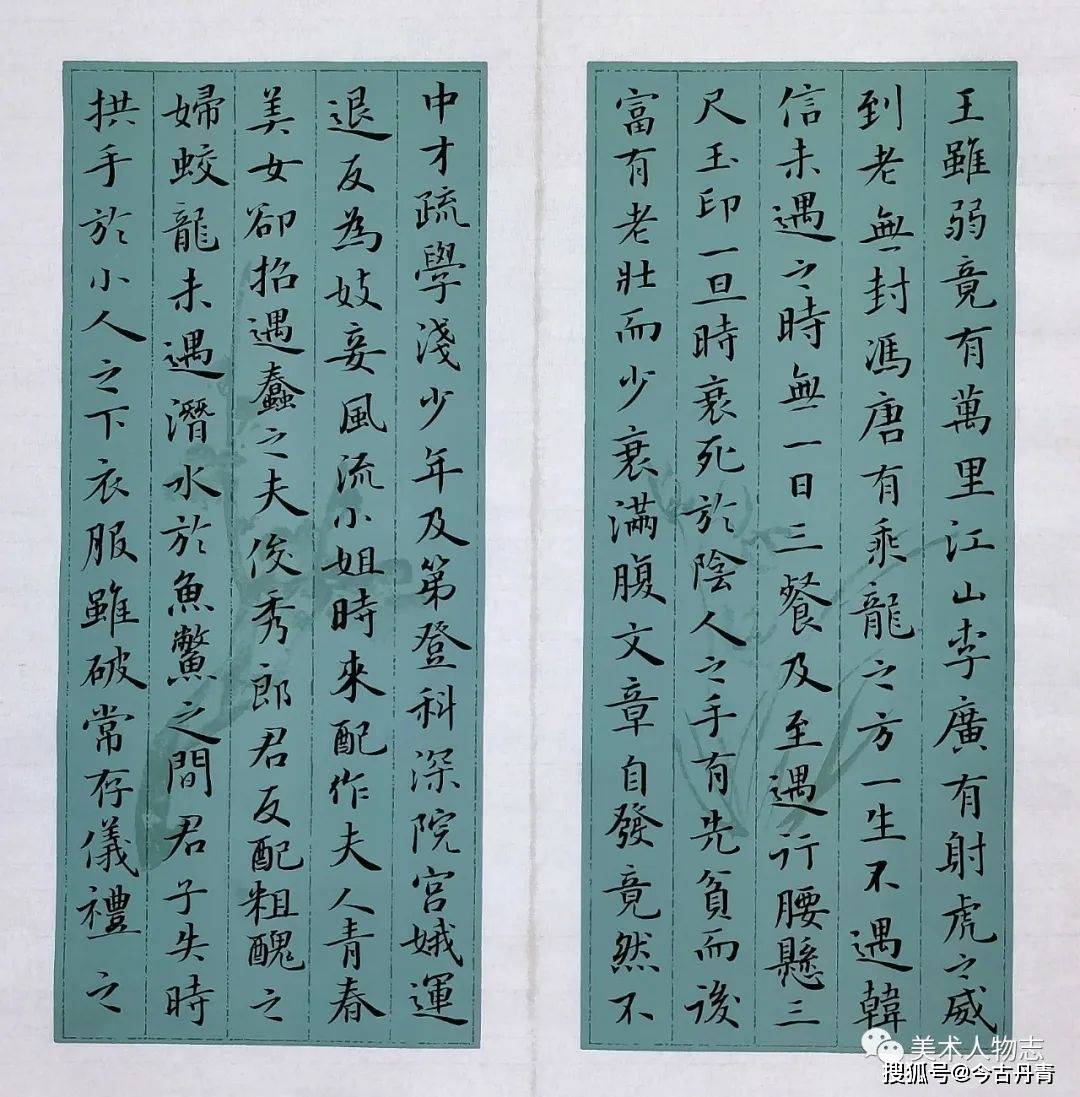 王雖弱竟有萬里江山李廣有射虎之威
到老無封馮唐有乘龍之方一生不遇韓
信未遇之時無一日三餐及至遇行腰懸三
尺玉印一旦時衰死於陰人之手有先貧而後
富有老壯而少衰滿腹文章自發竟然不
中才疏學淺少年及第登科深院宮娥運
退反為妓妾風流小姐時來配作夫人青春
美女卻招遇蠢之夫俊秀郎君反配粗醜之
婦蛟龍未遇潛水於魚鱉之間君子失時
拱手於小人之下衣服雖破常存儀禮之
美术人物志
搜狐号@今古丹青